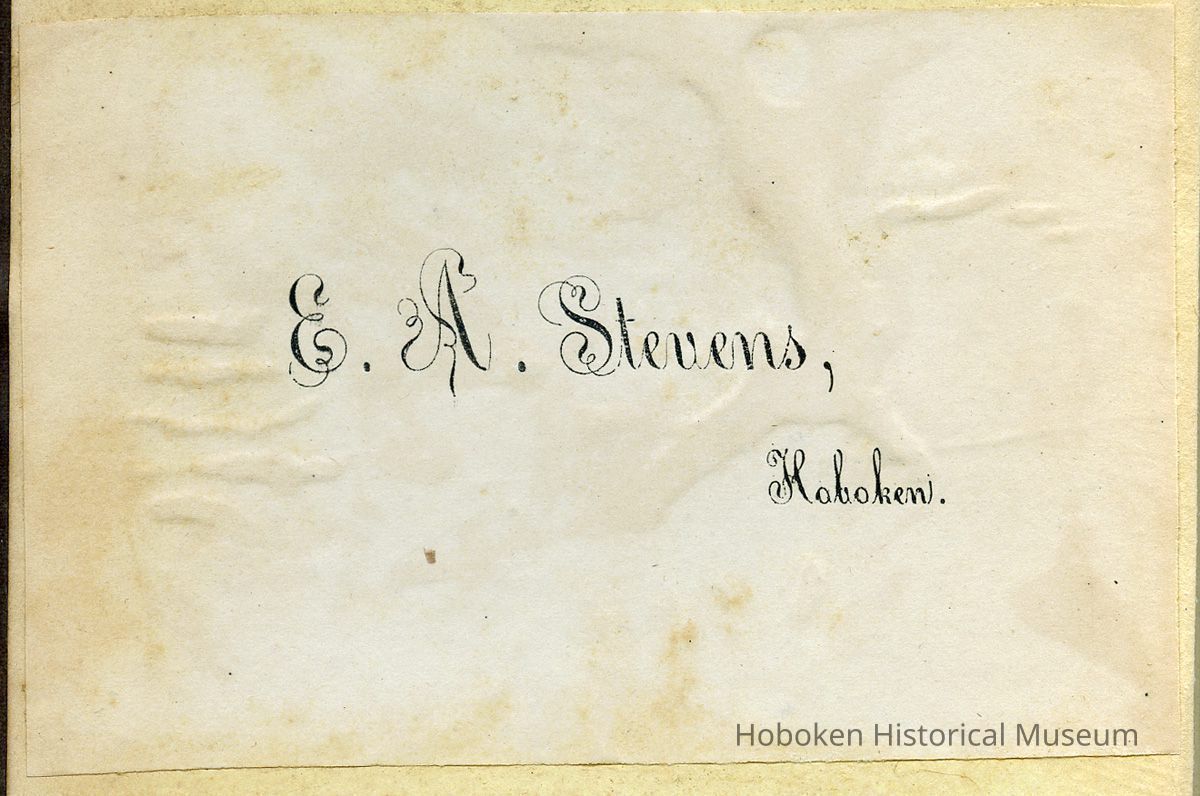 E. A. Stevens,
Hoboken.
Hoboken Historical Museum